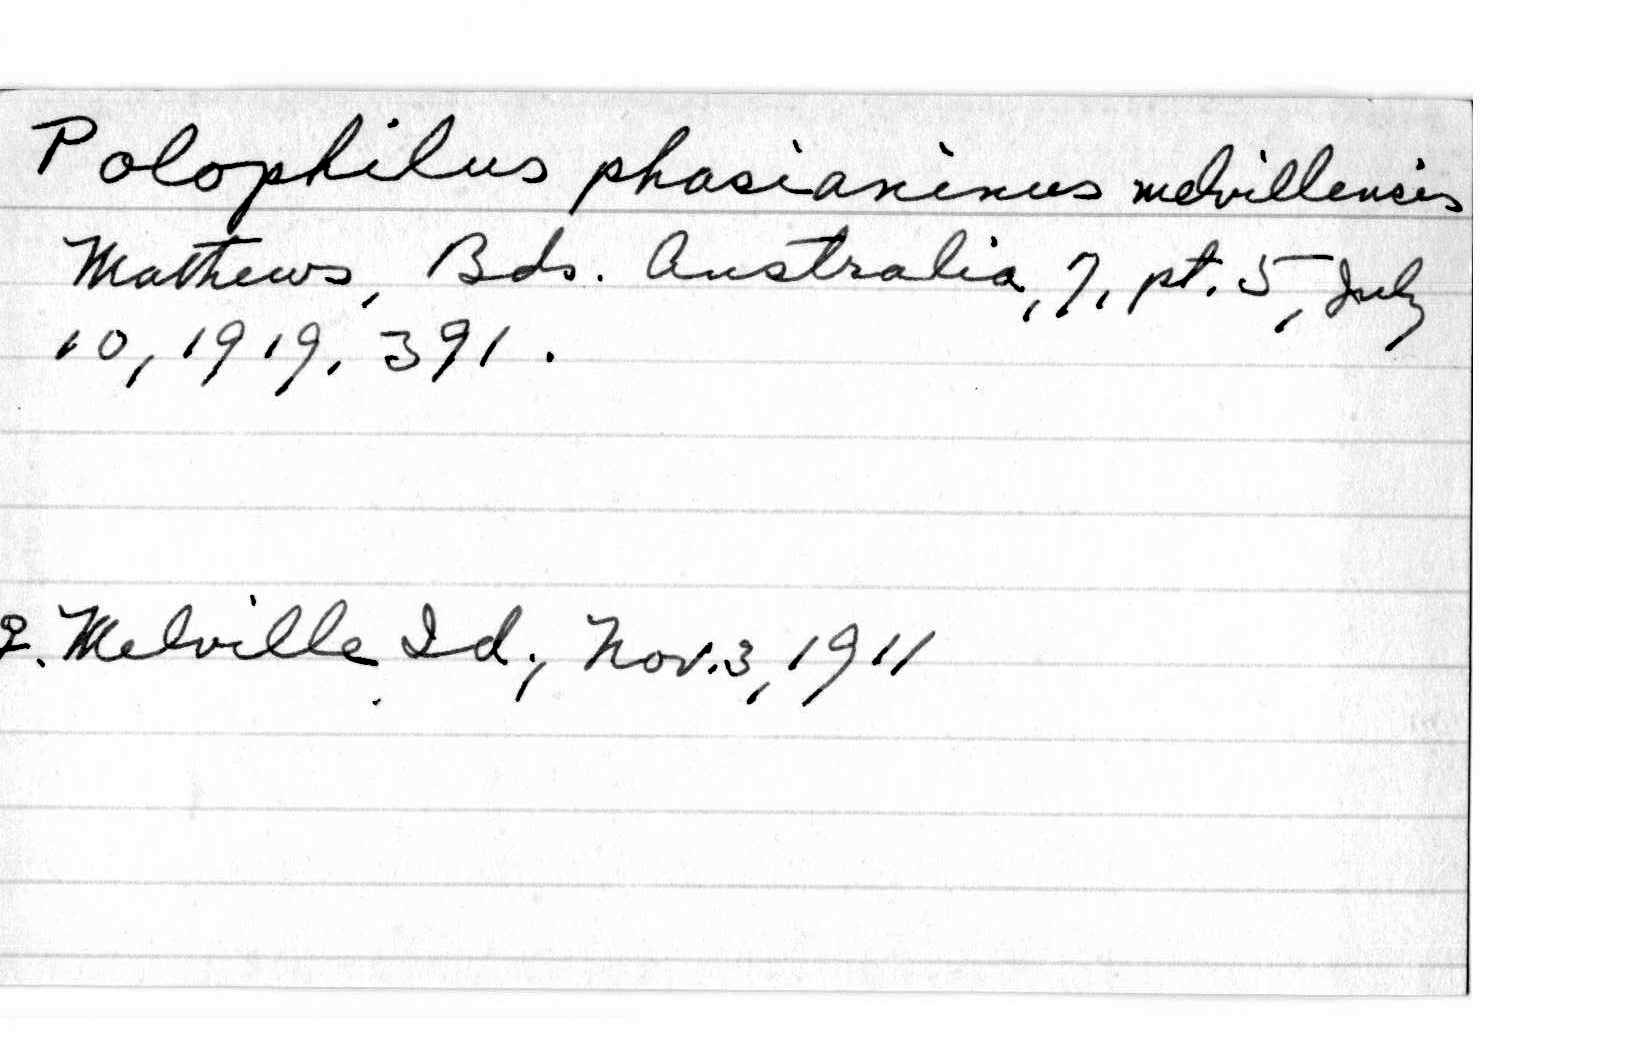 Polophilus phasianinus melvillensis
Mathews, Bds. Australia, 7, pt. 5, July
10, 1919, 391.
♀. Melville Id., Nov. 3, 1911